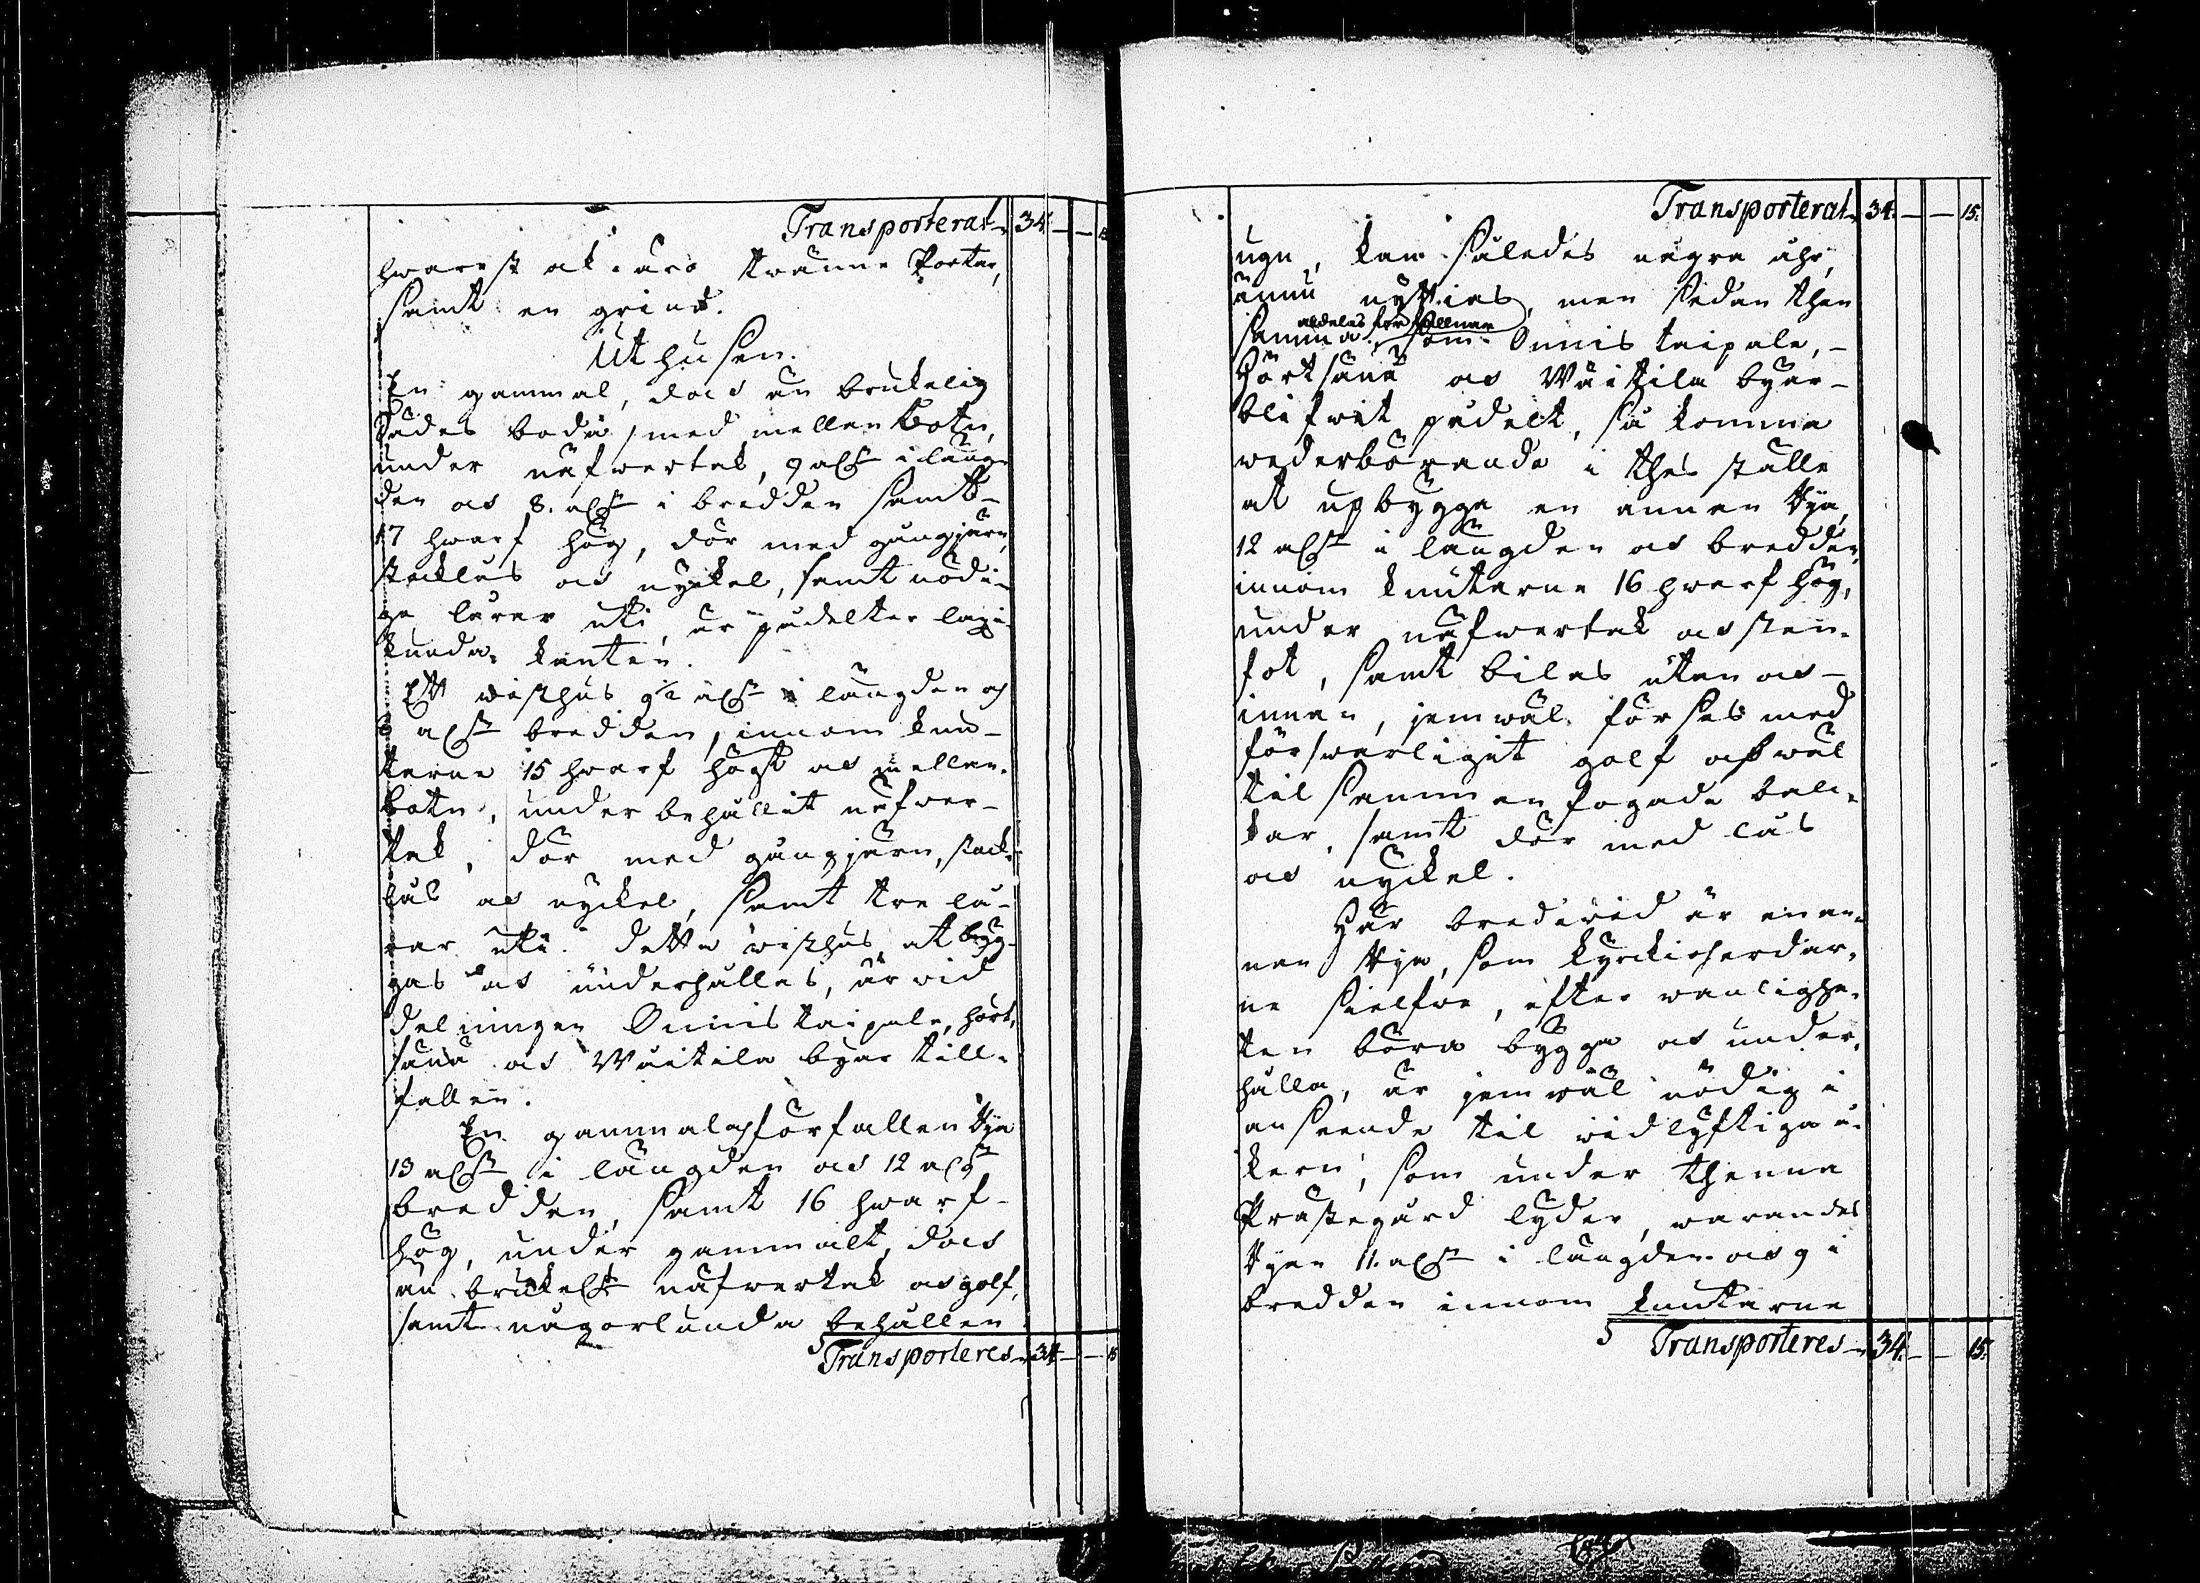 Transporterat 34. — — 15
hwarest ok äro twänne Portar,
samt en grind.
Uthusen.
En gammal, dock än brukelig
Sädes boda med mellan botn,
under näfwertak, 9 alnr i läng-
den ock 8. alnr i bredden samt
17 hwarf hög, dör med gångjärn,
stocklås ock nyckel, samt nödi-
ga lårar uti, är pådelter lagi-
kunda kanten.
Ett wisthus 9 1/2 alnr i längden och
8 alnr bredden, innom knu-
tarne 15 hwarf högt ock mellan-
botn, under behållit näfwer-
tak, dör med gångjärn, stock-
lås ock nyckel, samt tre lå-
rar uti. Detta wisthus at byg-
gas ock underhållas, är wid
delningen Onnistaipale, Hört-
sänä ock Wäitilä byar till-
fallen.
En gammal och förfallen Rya
13 alnr i längden ock 12 alnr
bredden, samt 16 hwarf
hög, under gammalt, dock
än brukelit näfwertak ock golf,
samt någorlunda behållen
Transporteres 34. — — 15
Transporterat 34. — — 15.
ugn, kan således några åhr,
ännu nyttias, men sedan then
aldeles förfallnar
samma, som Onnistaipale,
Hörtsänä ock Wäitilä byar
blifwit pådelt, så komma
wederbörande i thes ställe
at upbygga en annan Rya,
12 alnr i längden ock bredden
innom knutarne 16 hwarf hög,
under näfwertak ock sten-
fot, samt bilas utan ock
innan, jemwäl förses med
förswarligit golf af wäl
tilsamman fogade bal-
kar, samt dör med lås
ock nyckel.
Här bredewid är en an-
nan Rya, som Kyrckioherdar-
ne sielfwe, efter wanlighe-
ten böra bygga ock under-
hålla, är jemwäl nödig i
anseende til widlyftiga å-
kern, som under thenna
Prästegård lyder, warandes
Ryan 11. alnr i längden ock 9 i
bredden innom knutarne
Transporteres 34. — — 15.